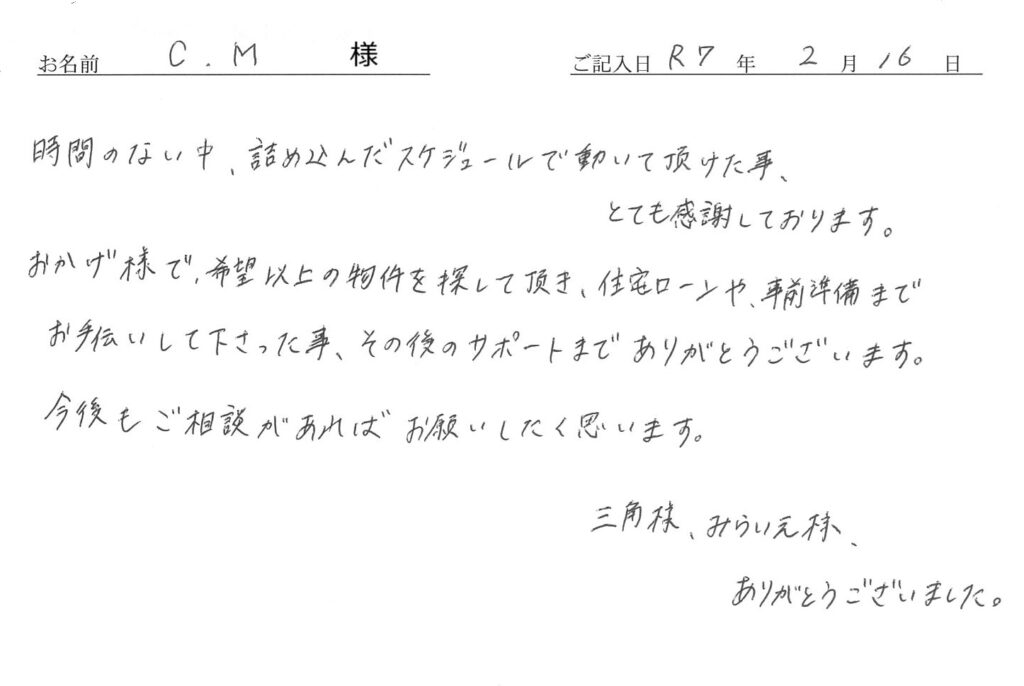 お名前 C.M 様 ご記入日 R7年 2月16日
時間のない中、詰め込んだスケジュールで動いて頂けた事、
とても感謝しております。
おかげ様で、希望以上の物件を探して頂き、住宅ローンや、事前準備まで
お手伝いして下さった事、その後のサポートまでありがとうございます。
今後もご相談があればお願いしたく思います。
三角様、みらいえ様、
ありがとうございました。